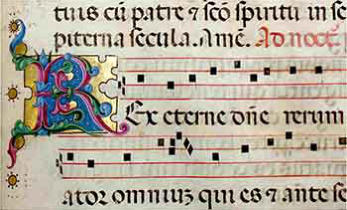 tuis cū patre ⁊ scō spiritu in se
piterna secula. Amē. Ad noct̄
Rex eterne dn̄e rerum
ator omniuz qui es ⁊ ante se